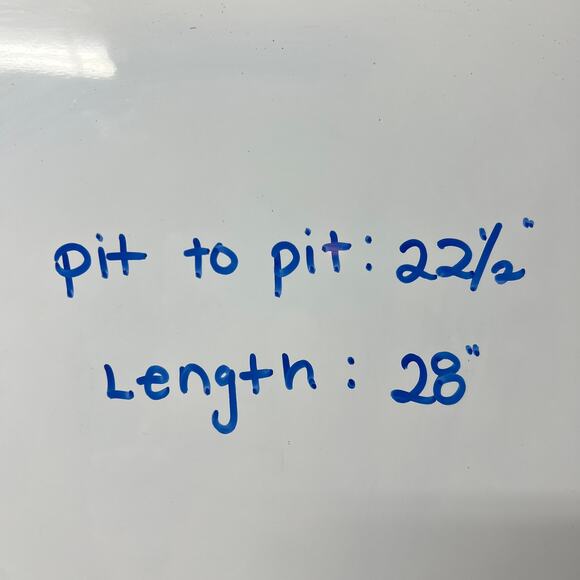 pit to pit: 22 1/2"
Length: 28"